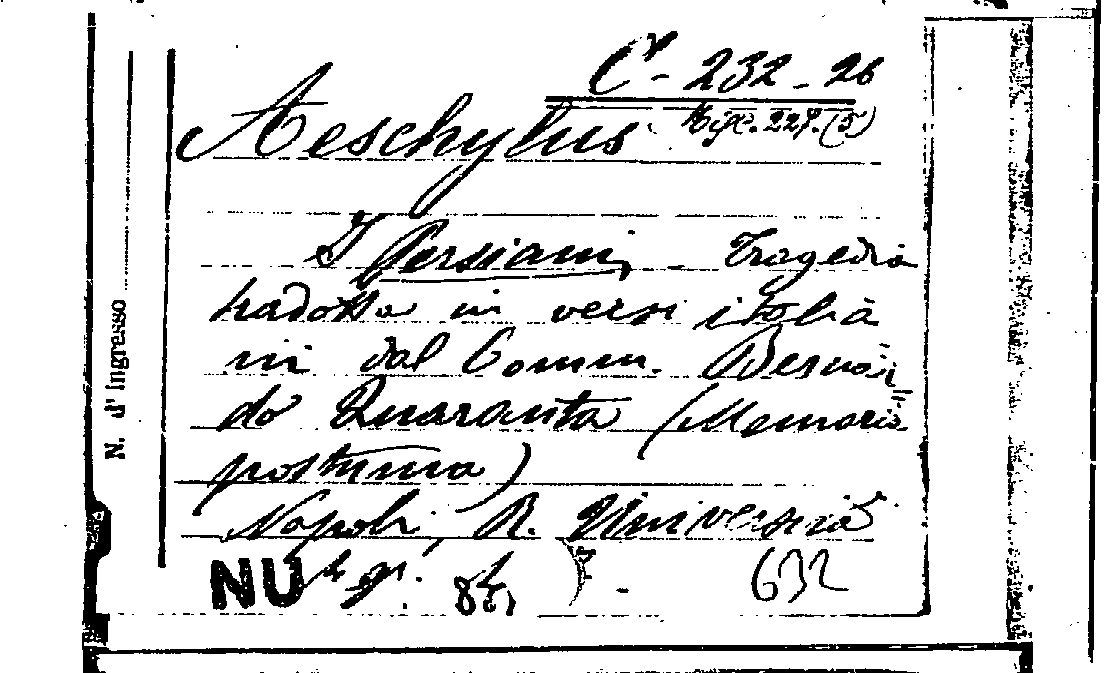 C - 232 - 26
Aeschylus Misc. 227. (5)
I Persiani, - Tragedia
tradotta in versi italia
ni dal Comm. Bernar
do Quaranta (Memoria
postuma)
Napoli, R. Università
NU 632
N. d'Ingresso